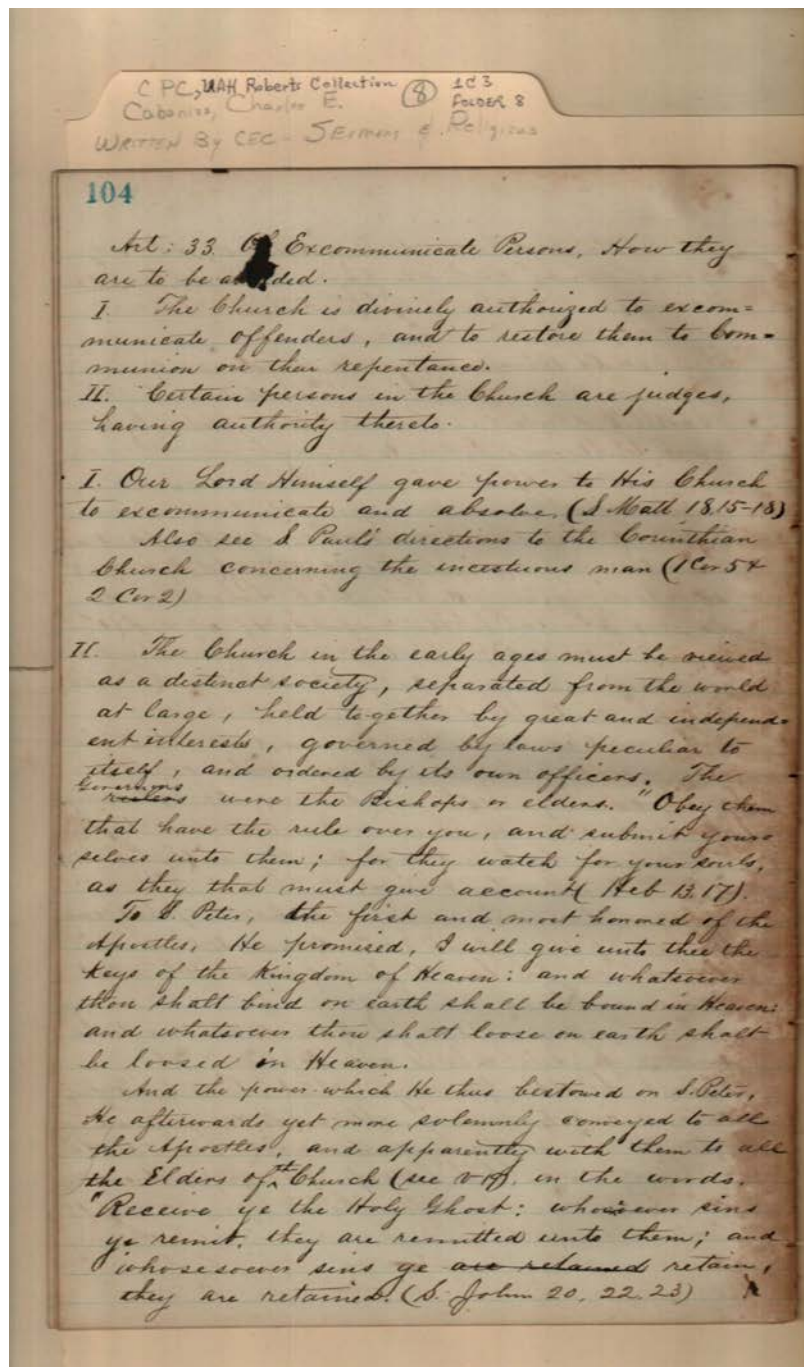 C PC, UAH Roberts Collection 8 1C3
Cabaniss, Charles E. FOLDER 8
WRITTEN BY CEC - SERMONS & Religious
104
Art: 33. Of Excommunicate Persons, How they
are to be avoided.
I. The Church is divinely authorized to excom=
municate offenders, and to restore them to Com=
munion on their repentance.
II. Certain persons in the Church are judges,
having authority thereto.
I. Our Lord Himself gave power to His Church
to excommunicate and absolve. (S. Matt 18,15-18)
Also see S Paul's directions to the Corinthian
Church concerning the incestuous man (1 Cor 5 &
2 Cor 2)
II. The Church in the early ages must be viewed
as a distinct society, separated from the world
at large, held together by great and independ=
ent interests, governed by laws peculiar to
itself, and ordered by its own officers. The
Governors
rulers were the Bishops or elders. "Obey them
that have the rule over you, and submit your=
selves unto them; for they watch for your souls,
as they that must give account (Heb 13,17).
To S. Peter, the first and most honored of the
Apostles, He promised, I will give unto thee the
Keys of the Kingdom of Heaven: and whatsoever
thou shalt bind on earth shall be bound in Heaven:
and whatsoever thou shalt loose on earth shalt
be loosed in Heaven.
And the power which He thus bestowed on S. Peter,
He afterwards yet more solemnly conveyed to all
the Apostles, and apparently with them to all
the Elders of th Church (see v 19). in the words.
"Receive ye the Holy Ghost: whosoever sins
ye remit, they are remitted unto them; and
whosesoever sins ye are retained retain,
they are retained. (S. John 20, 22.23)